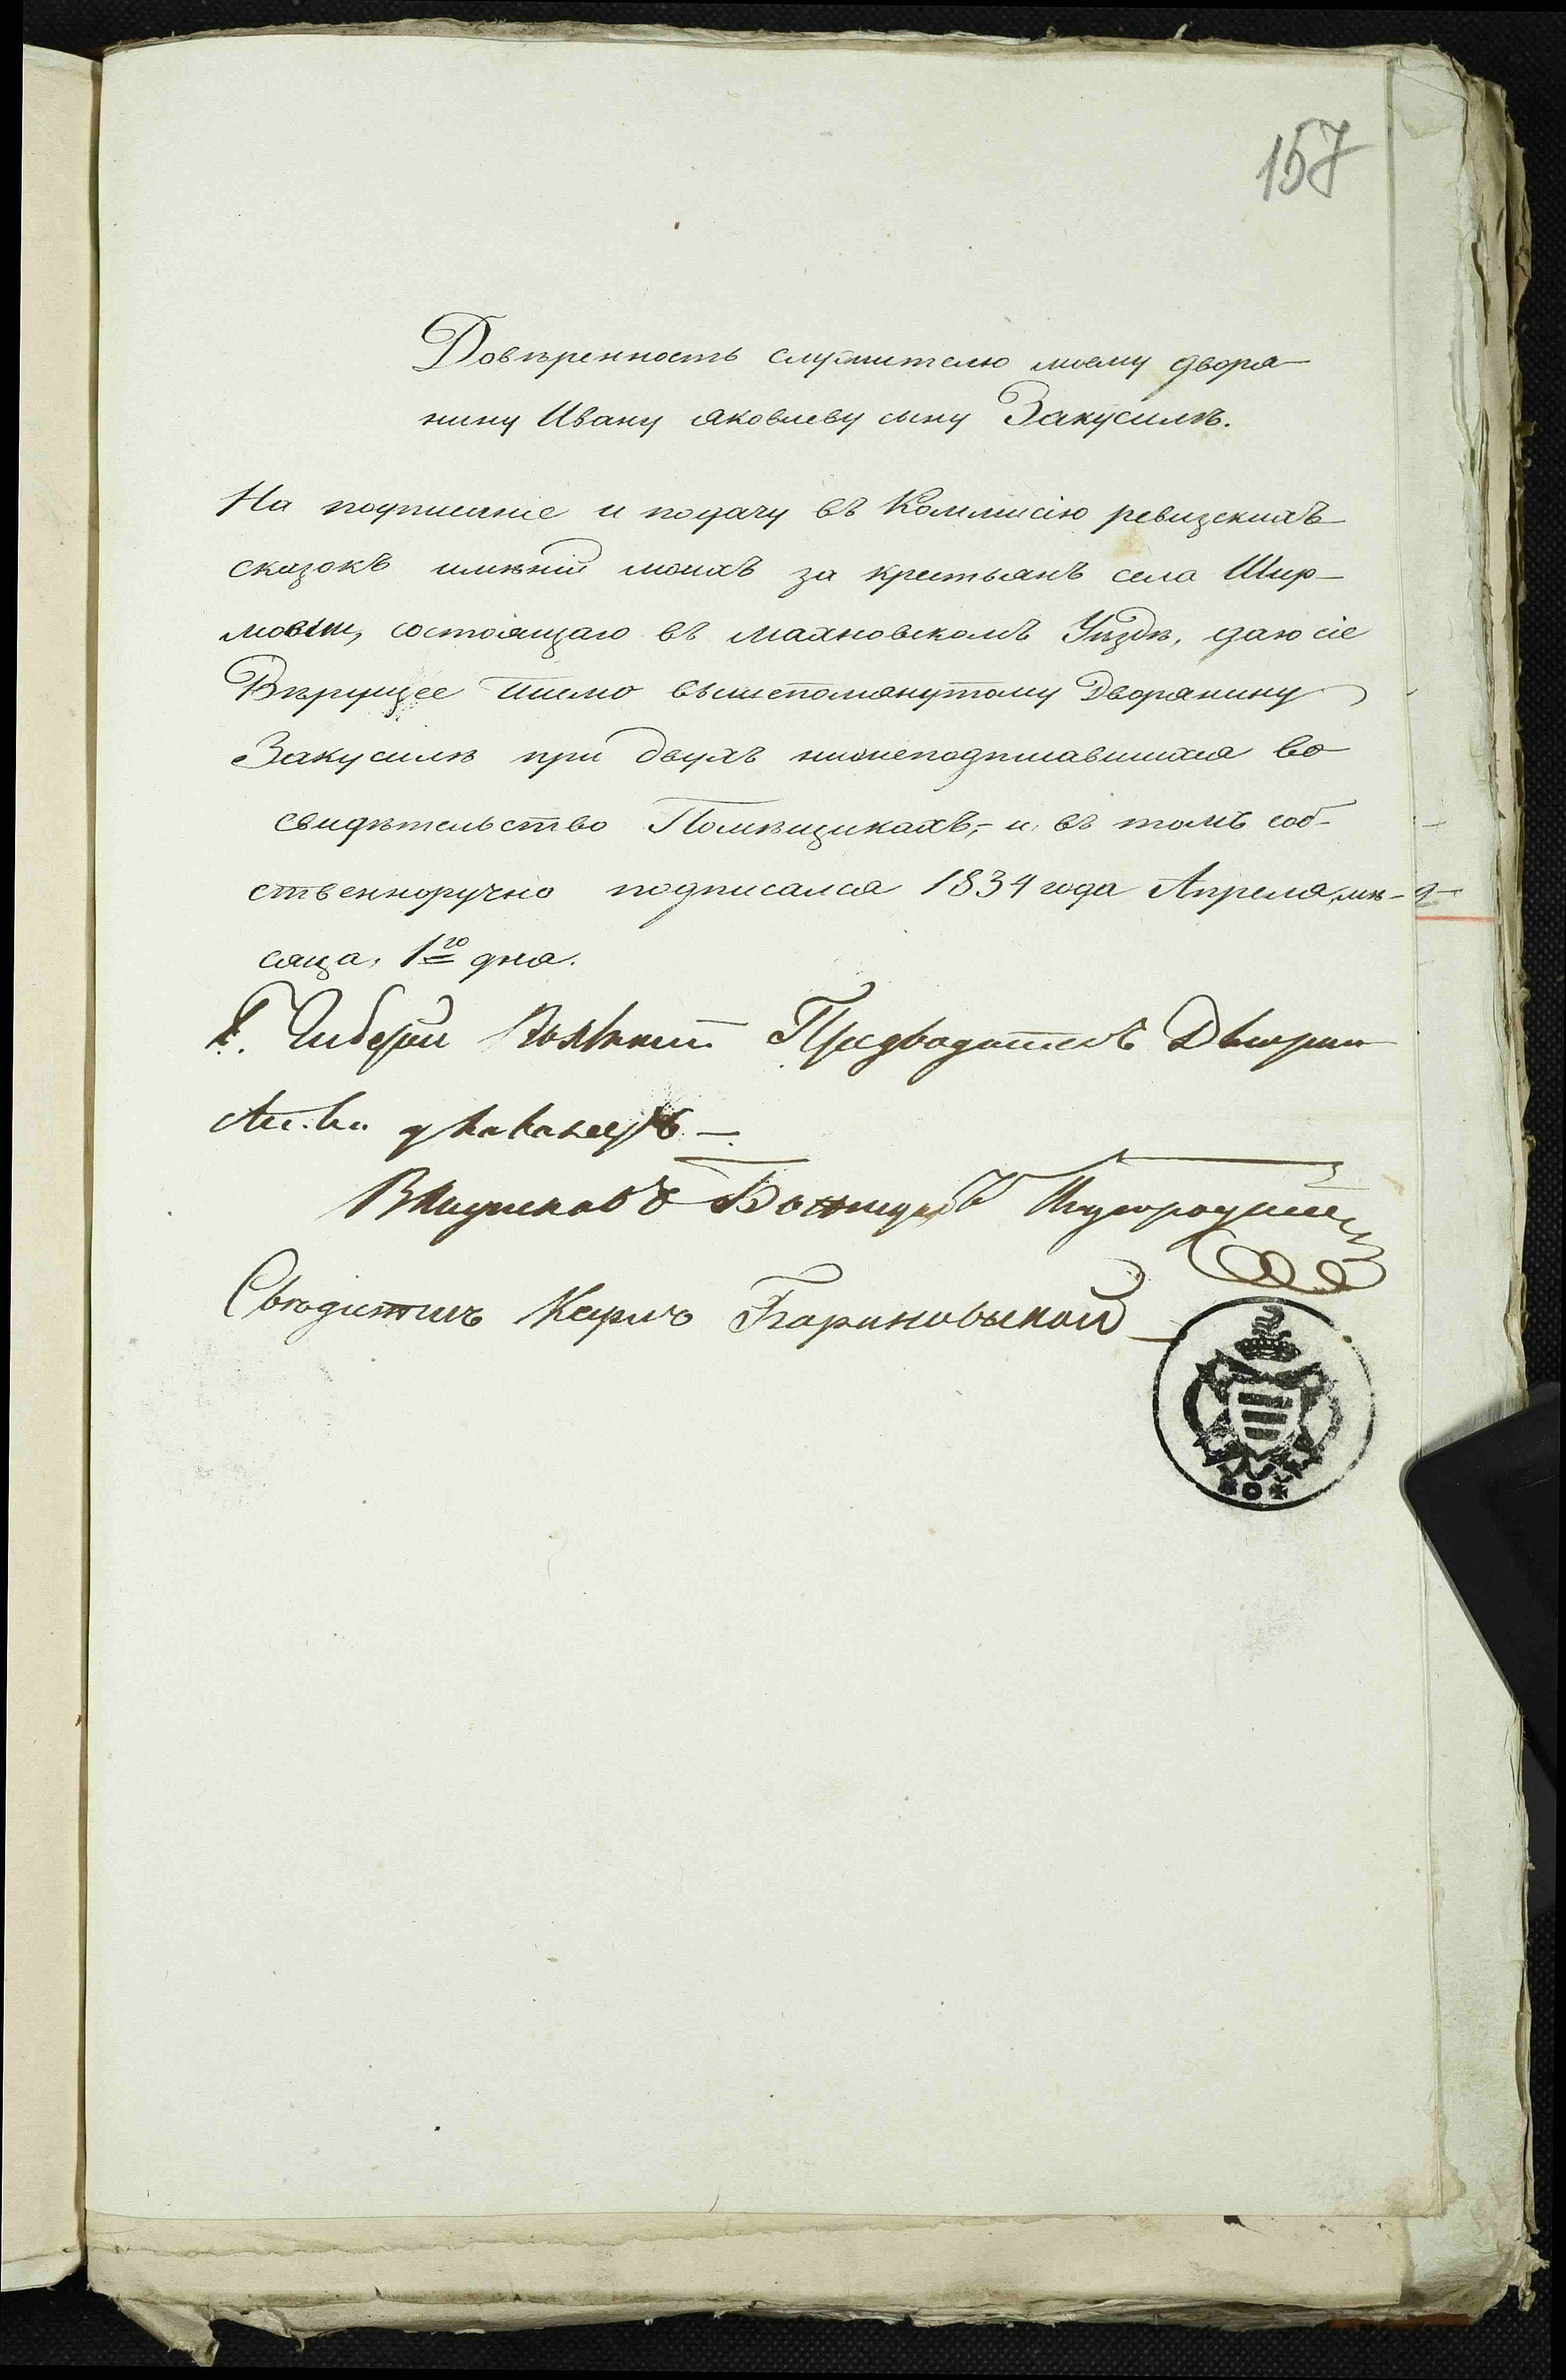 157
Довѣренность служителю моему дворя-
нину Ивану яковлеву сыну Закусилѣ.
На подписаніе и подачу въ Коммисію ревизскихъ
сказокъ имѣній моихъ за крестьянъ села Шир-
мовки, состоящаго въ махновскомъ Уѣздѣ, даю сіе
Вѣрущее письмо вышепомянутому Дворянину
Закусилѣ при двухъ нижеподписавшихся во
свидѣтельство Помѣщикахъ,- и въ томъ соб-
ственноручно подписался 1834 года Апреля, мѣ-
сяца, 1го дня.
Предводитель Дворян
ства и Кавалеръ —
Свѣдитель Карлъ Барановьской